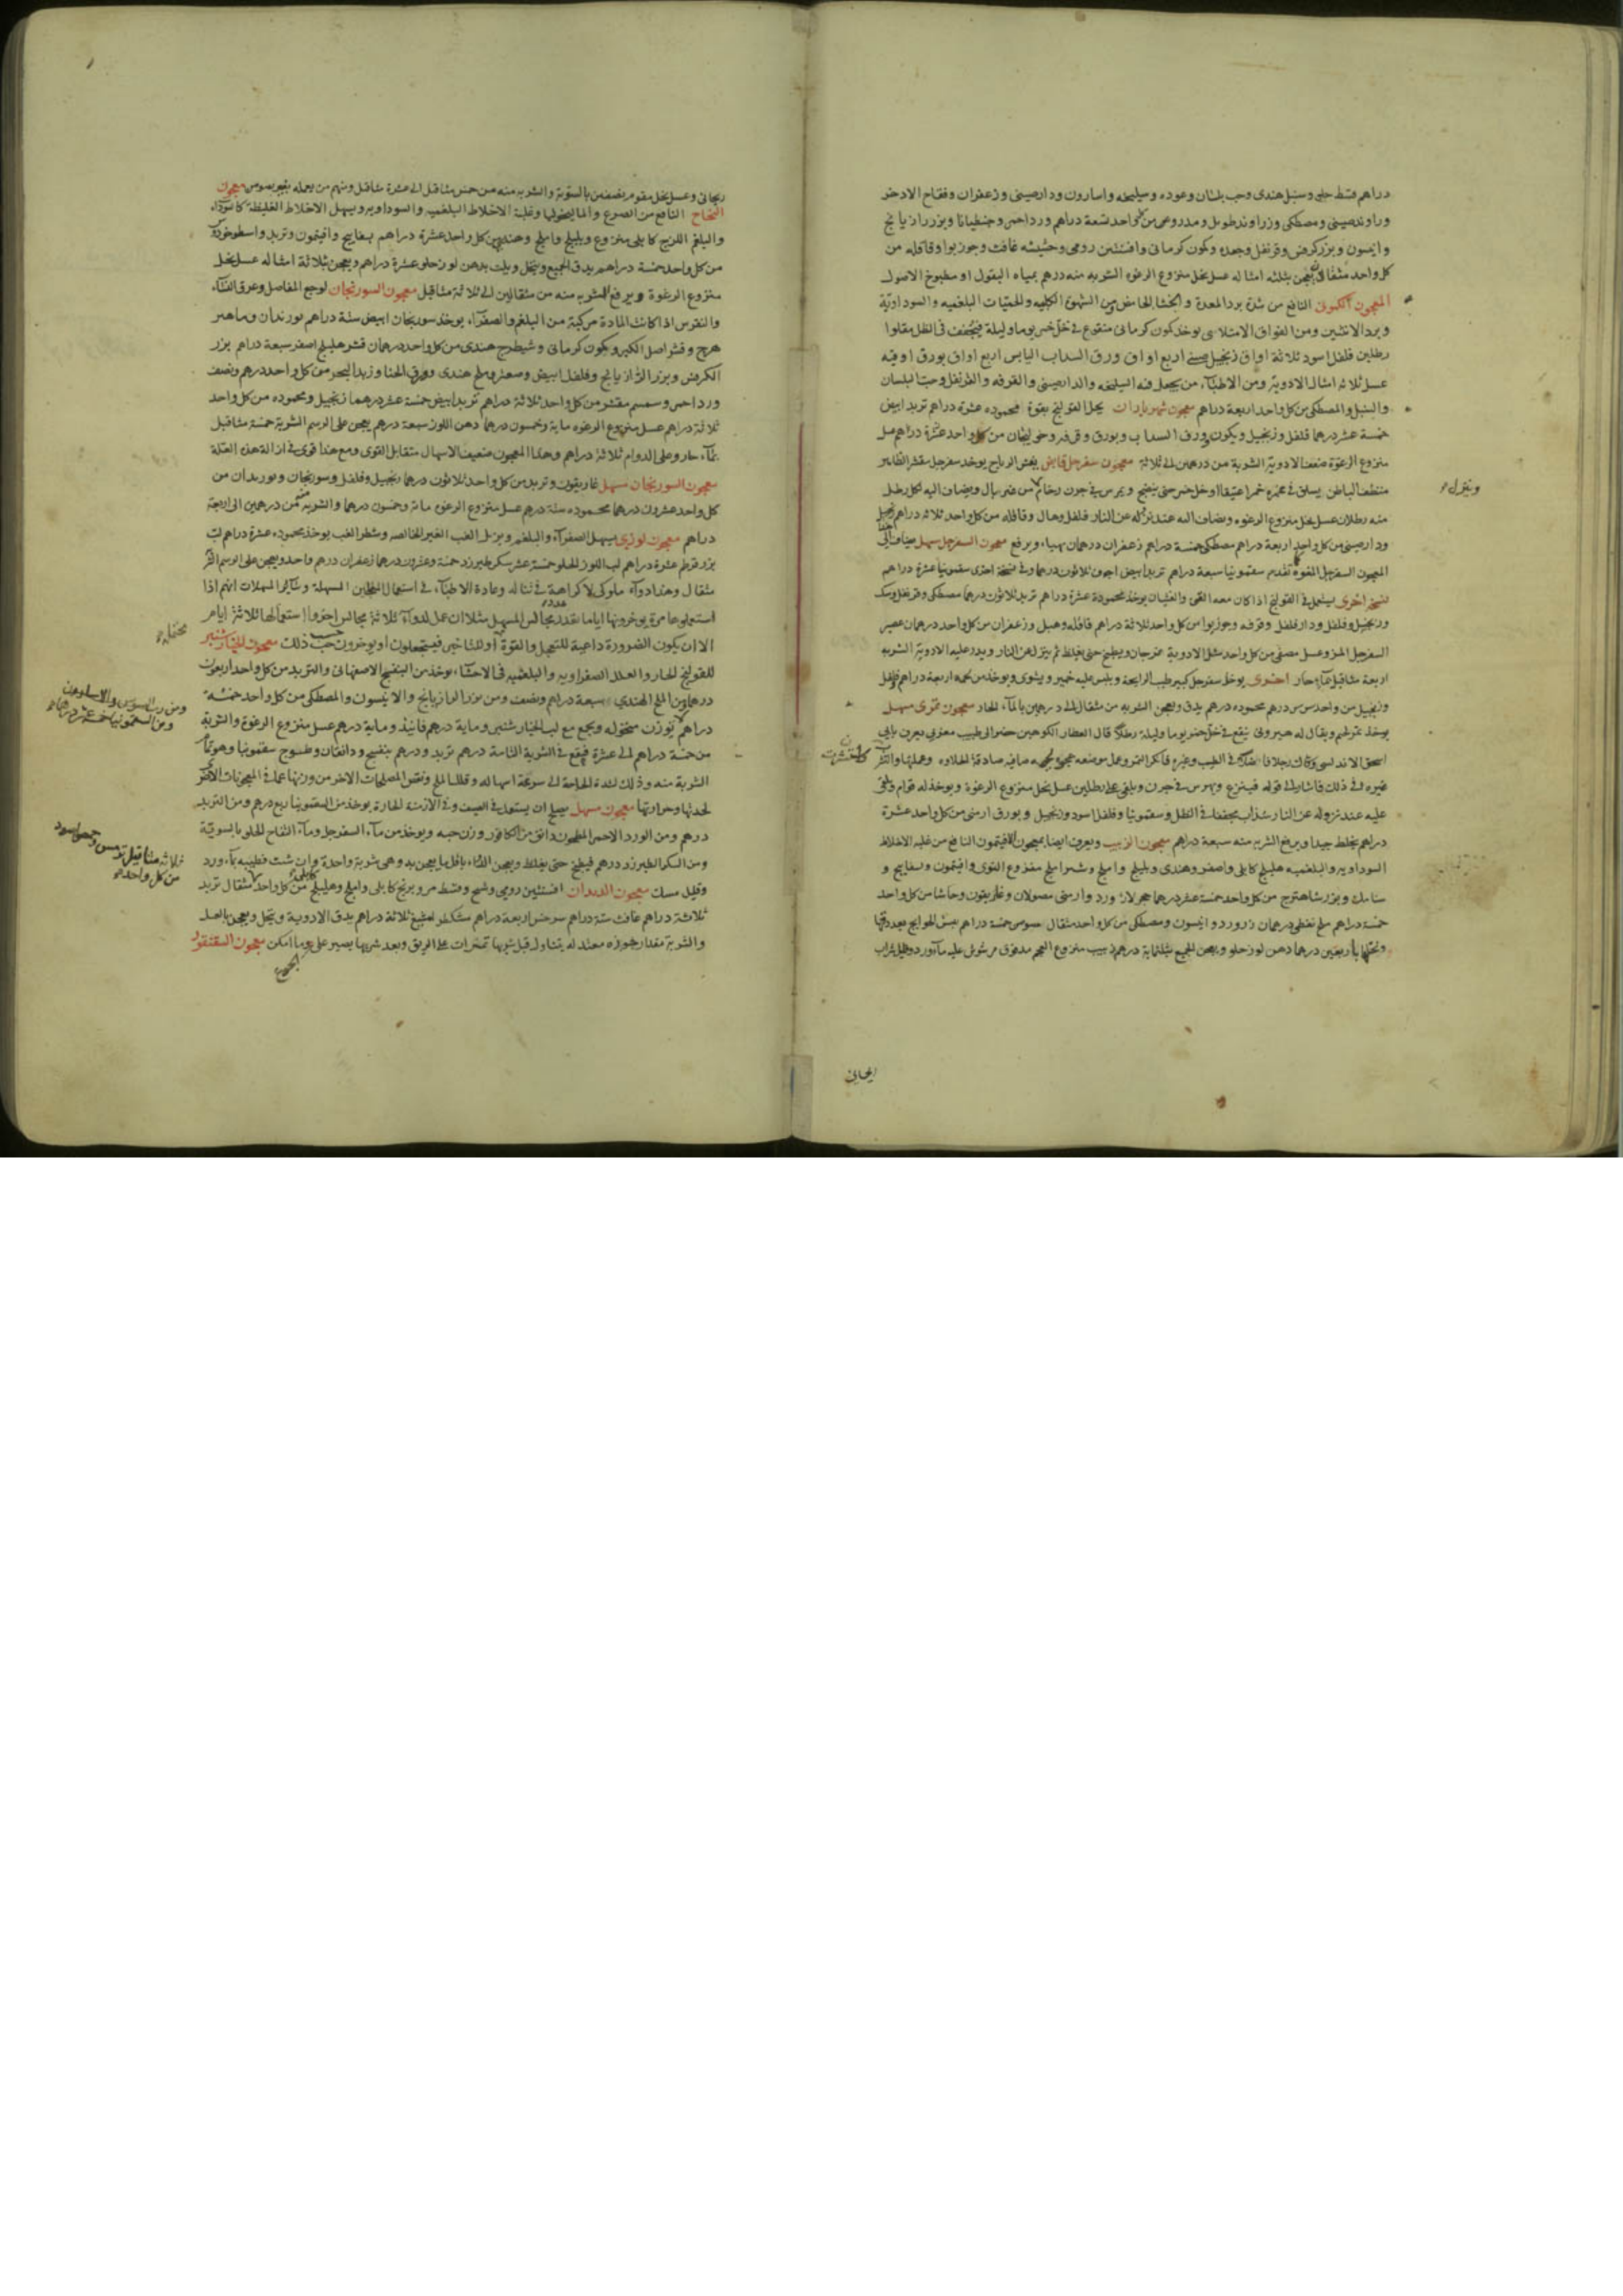 دراهم قسط حلو وسنبل هندى وحب بلسان وعوده وسليخه واسارون ودارصينى وزعفران وفقاح الاذخر
وراوند صينى ومصطكى وزراوند طويل ومدحرج من كل واحد تسعة دراهم ورد احمر وجنطيانا وبزر رازيانج
وانيسون وبزر كرفس وقرنفل وجعده وكمون كرمانى وافسنتين رومى وحشيشه غافت وجوزبوا وقاقله من
كل واحد مثقالان يعجن بثلثه امثاله عسل نحل منزوع الرغوه الشربه منه درهم بمياه البقول او مطبوخ الاصول
المعجون الكمونى النافع من شدة برد المعدة والجشا الحامض ومن الشهوة الكلبيه والحميات البلغميه والسوداويّة
وبرد الانثيين ومن الفواق الامتلاسى يوخذ كمون كرمانى منقوع فى خل خمر يوما وليلة يجفف فى الظل مقلوا
رطلين فلفل اسود ثلاثة اواق زنجبيل صينى اربع اواق ورق السداب اليابس اربع اواق بورق اوقيه
عسل ثلاثه امثال الادوية ومن الاطباء من يجعل فيه السليخه والدارصينى والقرفه والقرنفل وحب البلسان
والسنبل والمصطكى من كل واحد اربعة دراهم معجون شهرياران يحل القولنج بقوة محموده عشرة دراهم تربد ابيض
خمسة عشر درهما فلفل وزنجبيل وكمون وورق السداب وبورق وقرفه وخولنجان من كل واحد عشرة دراهم عسل
منزوع الرغوة ضعف الادوية الشربة من درهمين الى ثلاثة معجون سفرجل قابض يفش الرياح يوخذ سفرجل مقشر الظاهر
منظف الباطن يسلق فى غمره خمرا عتيقا او خل خمر حتى ينضج ويهرس فى جرن رخام ثم يضاف اليه لكل رطل
منه رطلان عسل نحل منزوع الرغوه ويضاف اليه عند نزوله عن النار فلفل وهال وقاقله من كل واحد ثلاثه دراهم زنجبيل
ودارصينى من كل واحد اربعة دراهم مصطكى خمسة دراهم زعفران درهمان ويرفع معجون السفرجل مسهل يضاف الى
المعجون السفرجل المقوى تقدم سقمونيا سبعة دراهم تربد ابيض اجوف ثلاثون درهما وفى نسخة اخرى سقمونيا عشرة دراهم
نسخه اخرى يستعمل فى القولنج اذا كان معه القى والغثيان يوخذ محمودة عشرة دراهم تربد ثلاثون درهما مصطكى وقرنفل وسك
وزنجبيل وفلفل ودارفلفل وقرفه وجوزبوا من كل واحد ثلاثة دراهم قاقله وهيل وزعفران من كل واحد درهمان عصير
السفرجل المز وعسل مصفى من كل واحد مثل الادوية يمزجان ويطبخ حتى يغلظ ثم ينزل عن النار ويذر عليه الادوية الشربه
اربعة مثاقيل بماء حار اخرى يوخذ سفرجل كبير طيب الرايحة ويلبس عليه خمير ويشوى ويوخذ من لحمه اربعة دراهم فلفل
وزنجبيل من واحد سدس درهم محموده درهم يدق ويعجن الشربه من مثقال الى درهمين بالماء الحار معجون تمرى مسهل
يوخذ تمر ويقال له هيرون ينقع فى خل خمر يوما وليلة رطلا قال العطار الكوهين حضر الى طبيب مغربى يعرف بابى
اسحق الاندلسى وكان رجلا فاضلا فى الطب وغيره
غيره فى ذلك فاشار الى قوله فينزع ويهرس فى جرن ويلقى على رطلين عسل نحل منزوع الرغوة ويوخذ له قوام ويلقى
عليه عند نزوله عن النار سذاب مجففا فى الظل وسقمونيا وفلفل اسود وزنجبيل وبورق ارمنى من كل واحد عشرة
دراهم يخلط جيدا ويرفع الشربه منه سبعة دراهم معجون الزبيب ويعرف ايضا بمعجون الافيتمون النافع من غلبه الاخلاط
السوداويه والبلغميه هليلج كابلى واصفر وهندى وبليلج واملج وشيراملج منزوع النوى وافيتمون وبسفايج و
سنامك وبزر شاهترج من كل واحد خمسة عشر درهما حجر لازورد وارمنى مصولان وغاريقون وحاشا من كل واحد
خمسة دراهم ملح نفطى درهمان زرورد وانيسون ومصطكى من كل واحد مثقال سوس خمسة دراهم بيس الحوايج بعد دقها
ونخلها باربعين درهما دهن لوز حلو ويعجن الجميع بثلثماية درهم زبيب منزوع العجم مدقوق مرشوش عليه ماء ورد وقليل شراب
ويترك
ريحانى
ريحانى وعسل نحل مقوم نصفين بالسوية والشربه منه من خمس مثاقيل الى عشرة مثاقيل ومنهم من يعمله بغير سوس معجون
النجاح النافع من الصرع والماليخوليا وغلبة الاخلاط البلغميه والسوداويه ويسهل الاخلاط الغليظة كالسوداء
والبلغم اللزج كابلى منزوع وبليلج واملج وهندى من كل واحد عشرة دراهم بسفايج وافيتمون وتربد واسطوخودس
من كل واحد خمسة دراهم يدق الجميع وينخل ويلت بدهن لوز حلو عشرة دراهم ويعجن ثلاثة امثاله عسل نحل
منزوع الرغوة ويرفع الشربه منه من مثقالين الى ثلاثة مثاقيل معجون السورنجان لوجع المفاصل وعرق النساء
والنقرس اذا كانت المادة مركبة من البلغم والصفراء يوخذ سورنجان ابيض ستة دراهم بوزيدان وماهى
زهرج وقشر اصل الكبر وكمون كرمانى وشيطرج هندى من كل واحد درهمان قشر هليلج اصفر سبعة دراهم بزر
الكرفس وبزر الرازيانج وفلفل ابيض وصعتر وملح هندى وورق الحنا وزبد البحر من كل واحد درهم ونصف
ورد احمر وسمسم مقشر من كل واحد ثلاثة دراهم تربد ابيض خمسة عشر درهما زنجبيل ومحموده من كل واحد
ثلاثة دراهم عسل منزوع الرغوه ماية وخمسون درهما دهن اللوز سبعة درهم يعجن على الرسم الشربة خمسة مثاقيل
بماء حار وعلى الدوام ثلاثة دراهم وهذا المعجون ضعيف الاسهال متقابل القوى ومع هذا قوى فى ازالة هذه العلة
معجون السورنجان مسهل غاريقون وتربد من كل واحد ثلاثون درهما زنجبيل وفلفل وسورنجان وبوزيدان من
كل واحد عشرون درهما محموده ستة دراهم عسل منزوع الرغوه ماية وخمسون درهما والشربه منه من درهمين الى اربعة
دراهم معجون لوزى يسهل الصفراء والبلغم ويزيل الغب الغير الخالصه وشطر الغب يوخذ محموده عشرة دراهم لب
بزر قرطم عشرة دراهم لب اللوز الحلو خمسة عشر سكر طبرزد خمسة وعشرون درهما زعفران درهم واحد ويعجن على الرسم الشربه
مثقال وهذا دواء ملوكى لا كراهة فى تناوله وعادة الاطباء فى استعمال المعاجين المسهلة وساير المسهلات انهم اذا
استعملوها مرة يوخرونها اياما بقدر مجالس المسهل مثلا ان عمل الدواء ثلاثة مجالس اخروا استعمالها ثلاثة ايام
الا ان يكون الضرورة داعية للتعجيل والقوة او للتاخير فيستعملون او يوخرون حسب ذلك معجون الخيارشنبر
للقولنج الحار والعلل الصفراويه والبلغميه فى الاحشاء يوخذ من البنفسج الاصفهانى والتربد من كل واحد اربعون
درهما ومن الملح الهندى سبعة دراهم ونصف ومن بزر الرازيانج والانيسون والمصطكى من كل واحد خمسة
دراهم يوزن منخوله ويجمع مع لب الخيارشنبر وماية درهم فانيذ وماية درهم عسل منزوع الرغوة والشربة
من خمسة دراهم الى عشرة فيقع فى الشربة التامة درهم تربد ودرهم بنفسج ودانقان وطسوج سقمونيا وهو تمام
الشربة منه وذلك لشدة الحاجة الى سرعة اسهاله وقلل الملح ونقص المصلحات الاخر من وزنها عما فى المعجونات الاخر
لحدتها وحرارتها معجون مسهل يصلح ان يستعمل فى الصيف وفى الازمنة الحارة يوخذ من السقمونيا ربع درهم ومن التربد
درهم ومن الورد الاحمر المطحون دانق من الكافور وزن حبه ويوخذ من ماء السفرجل وماء التفاح الحلو بالسوية
ومن السكر الطبرزد درهم فيطبخ حتى يغلظ ويعجن الدواء باقل ما يعجن به وهى شربة واحدة وان شئت فطيبه بماء ورد
وقليل مسك معجون الديدان افسنتين رومى وشيح وقسط مر وبرنج كابلى واملج وهليلج من كل واحد مثقال تربد
ثلاثة دراهم غافت ستة دراهم سرخس اربعة دراهم مشكطرامشيغ ثلاثة دراهم يدق الادوية وينخل ويعجن بالعسل
والشربة مقدار جوزة معتدله يتناول قبل شربها تمرات على الريق وبعد شربها يصبر على الجوع ما امكن معجون السقنقور
ومن رب السوس
ومن السقمونيا خمسة عشر درهما
ثلاثة مثاقيل ترمس وحمص اسود
من كل واحد